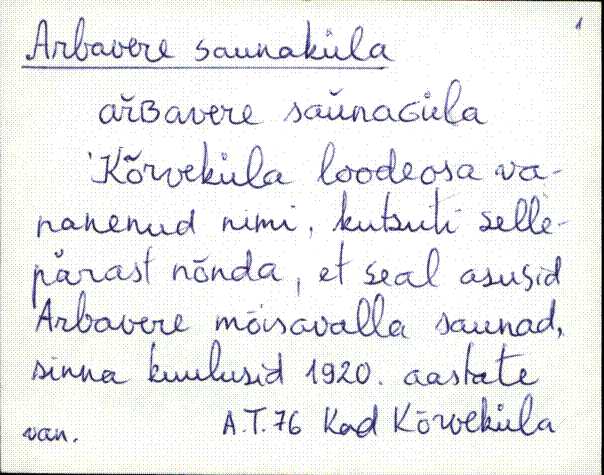 1
Arbavere saunaküla
ařʙavere saŭnaɢüla
'Kõrveküla loodeosa va-
nanenud nimi, kutsuti selle-
pärast nõnda, et seal asusid
Arbavere mõisavalla saunad,
sinna kuulusid 1920. aastate
van. A.T.76 Kad Kõrveküla